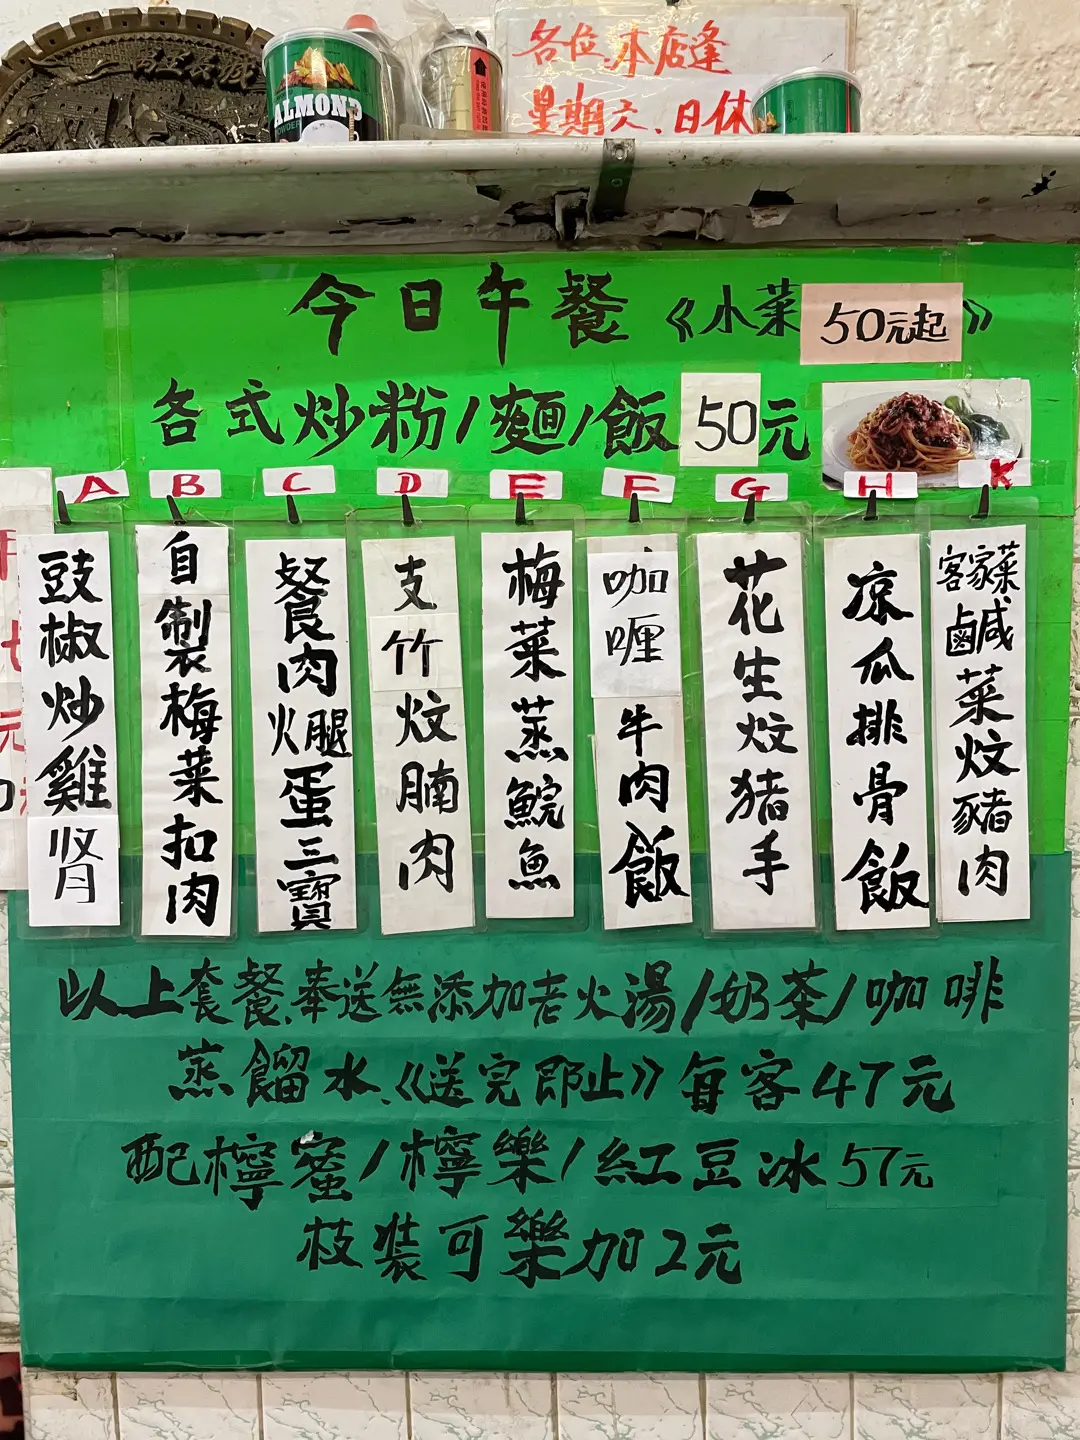 ALMOND
POWDER
各位,本店逢
星期六、日休
今日午餐《小菜50元起》
各式炒粉/麵/飯50元
A B C D E F G H K
豉椒炒雞腎
自製梅菜扣肉
餐肉火腿蛋三寶
支竹炆腩肉
梅菜蒸鯇魚
咖喱牛肉飯
花生炆猪手
凉瓜排骨飯
客家菜鹹菜炆豬肉
以上套餐,奉送無添加老火湯/奶茶/咖啡
蒸餾水、《送完即止》每客47元
配檸蜜/檸樂/紅豆冰57元
枝裝可樂加2元